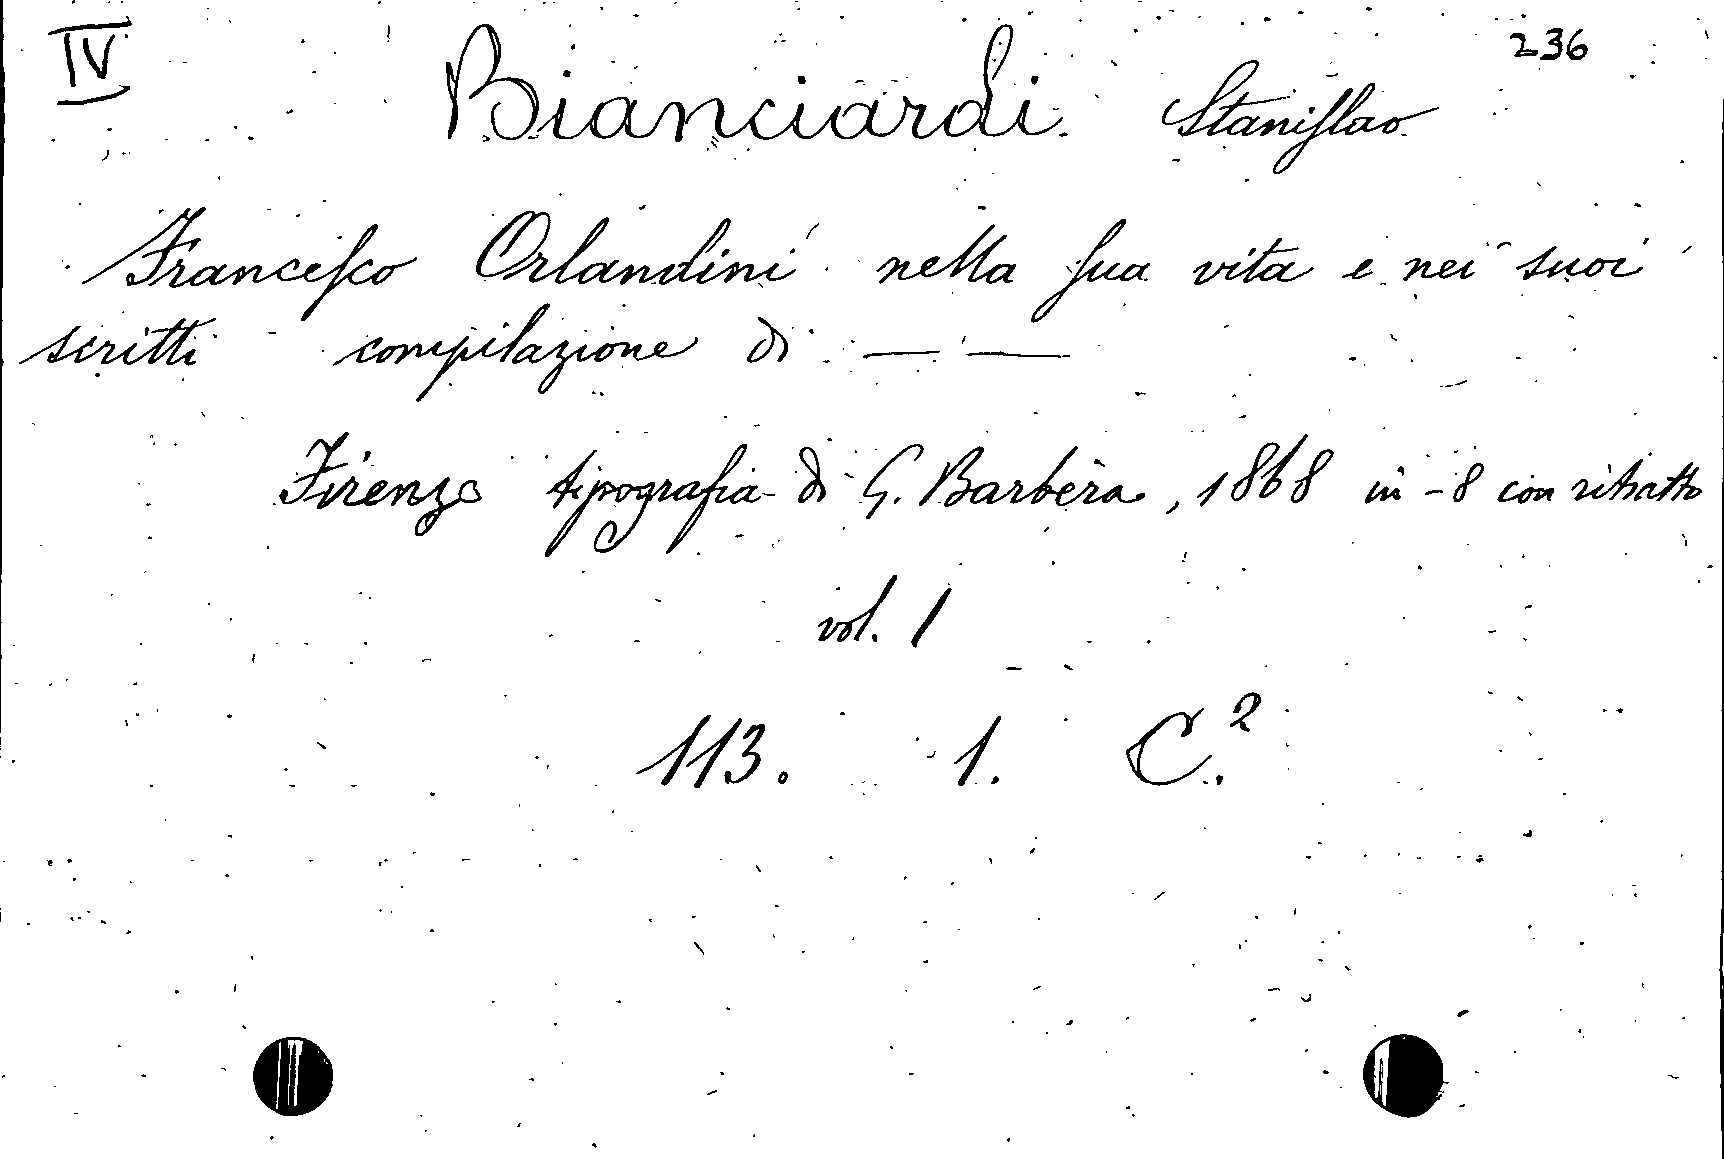 IV
236
Bianciardi Stanislao
Francesco Orlandini nella sua vita e nei suoi
scritti compilazione di — —
Firenze tipografia di G. Barbèra, 1868 in-8 con ritratto
vol. 1
113. 1. C.²